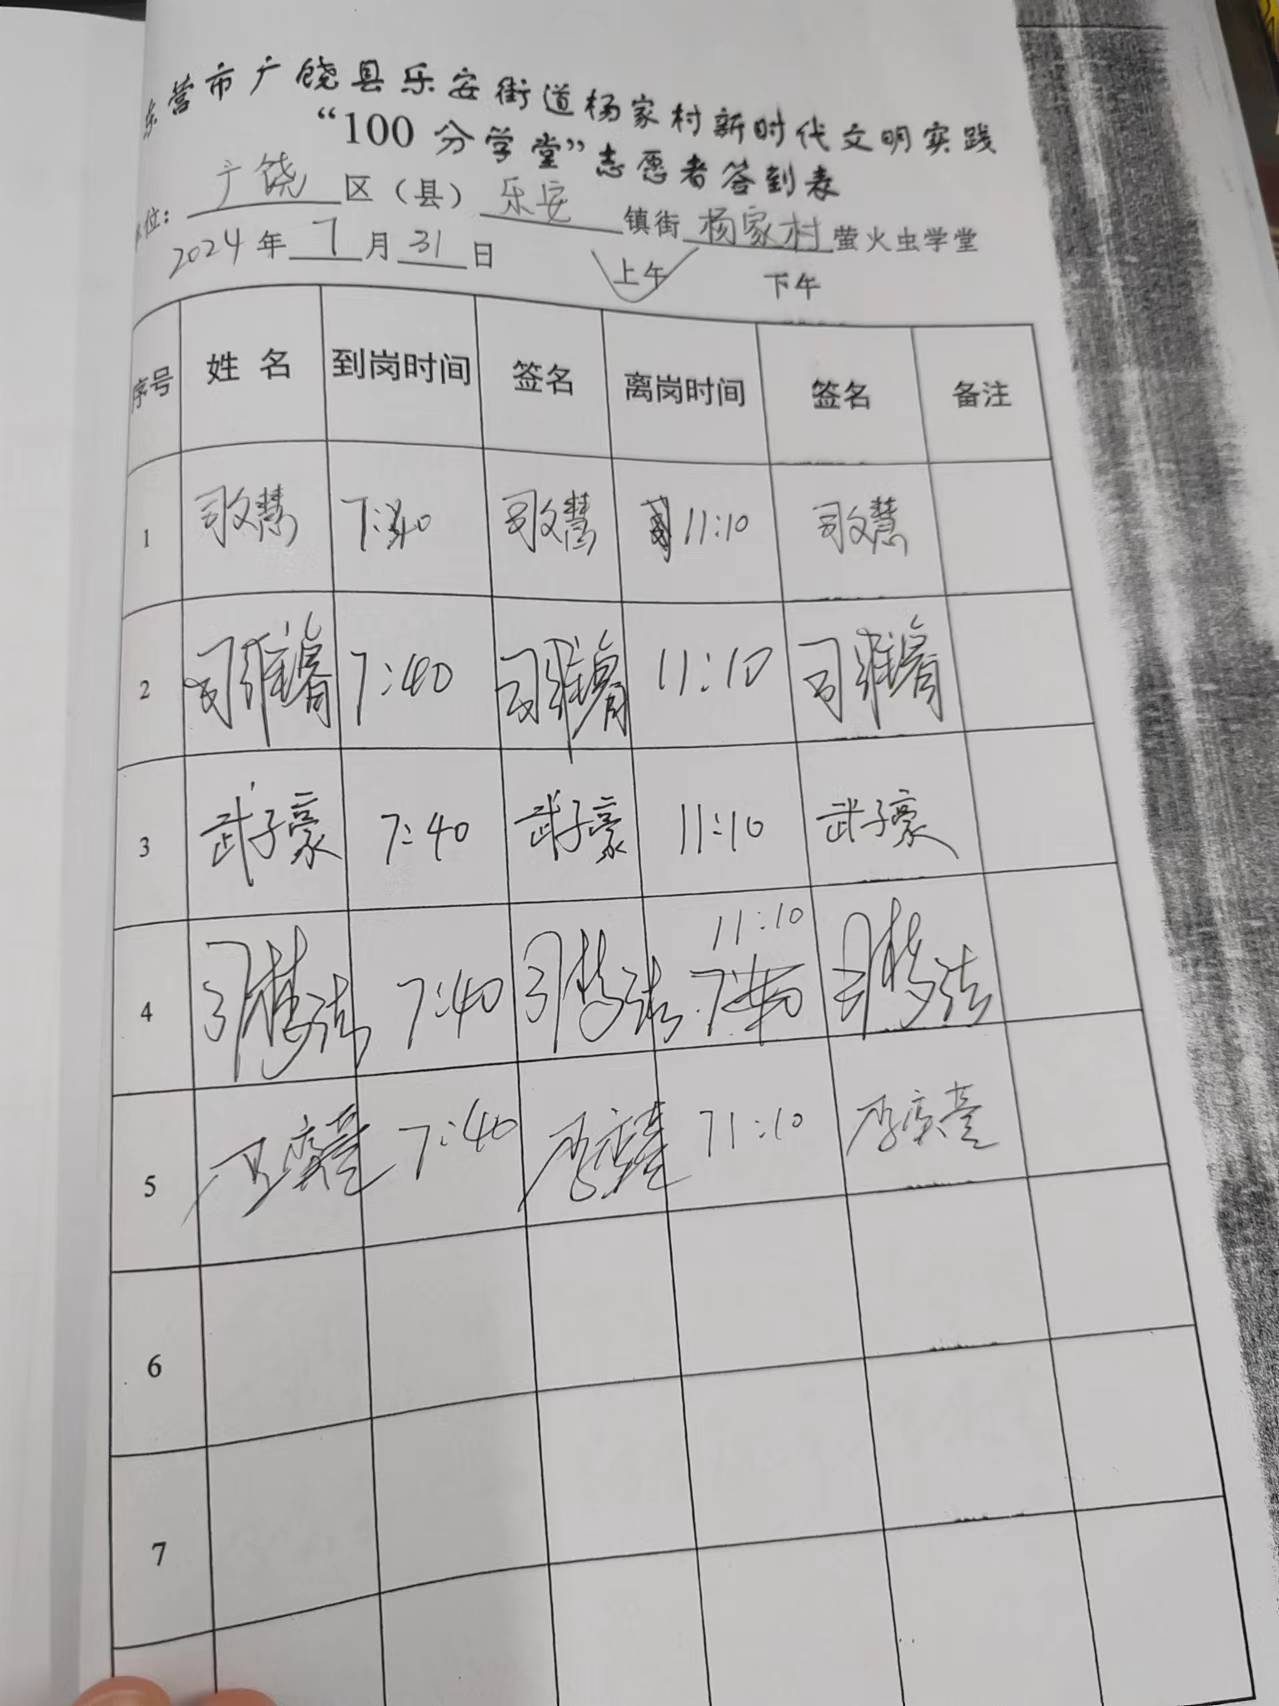 东营市广饶县乐安街道杨家村新时代文明实践
“100分学堂”志愿者签到表
位：广饶区（县）乐安镇街杨家村萤火虫学堂
2024年7月31日 上午 下午
序号 姓名 到岗时间 签名 离岗时间 签名 备注
1 司文慧 7:40 司文慧 11:10 司文慧
2 司雅睿 7:40 司雅睿 11:10 司雅睿
3 武子豪 7:40 武子豪 11:10 武子豪
11:10
4 司梦洁 7:40 司梦洁 7:40 司梦洁
5 7:40 11:10
6
7